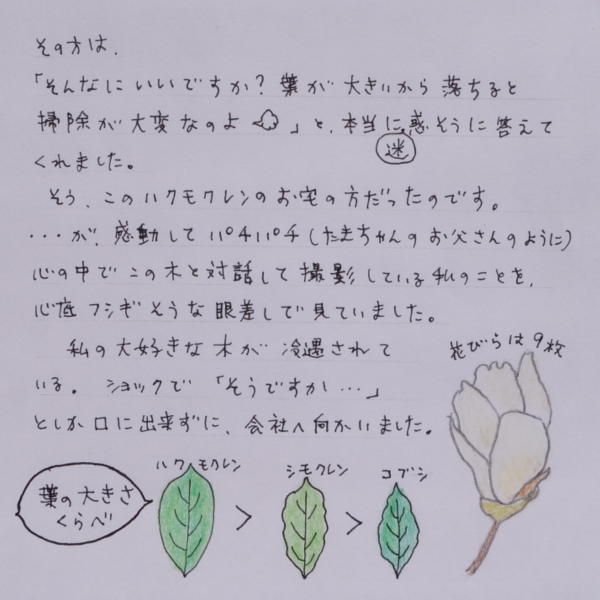 その方は、
「そんなにいいですか？葉が大きいから落ちると
掃除が大変なのよ」と、本当に惑そうに答えて
迷
くれました。
そう、このハクモクレンのお宅の方だったのです。
…が、感動してパチパチ(たまちゃんのお父さんのように)
心の中でこの木と対話して撮影している私のことを、
心底フシギそうな眼差しで見ていました。
私の大好きな木が冷遇されて
いる。ショックで「そうですか…」
としか口に出来ずに、会社へ向かいました。
花びらは9枚
葉の大きさ
くらべ
ハクモクレン > シモクレン > コブシ